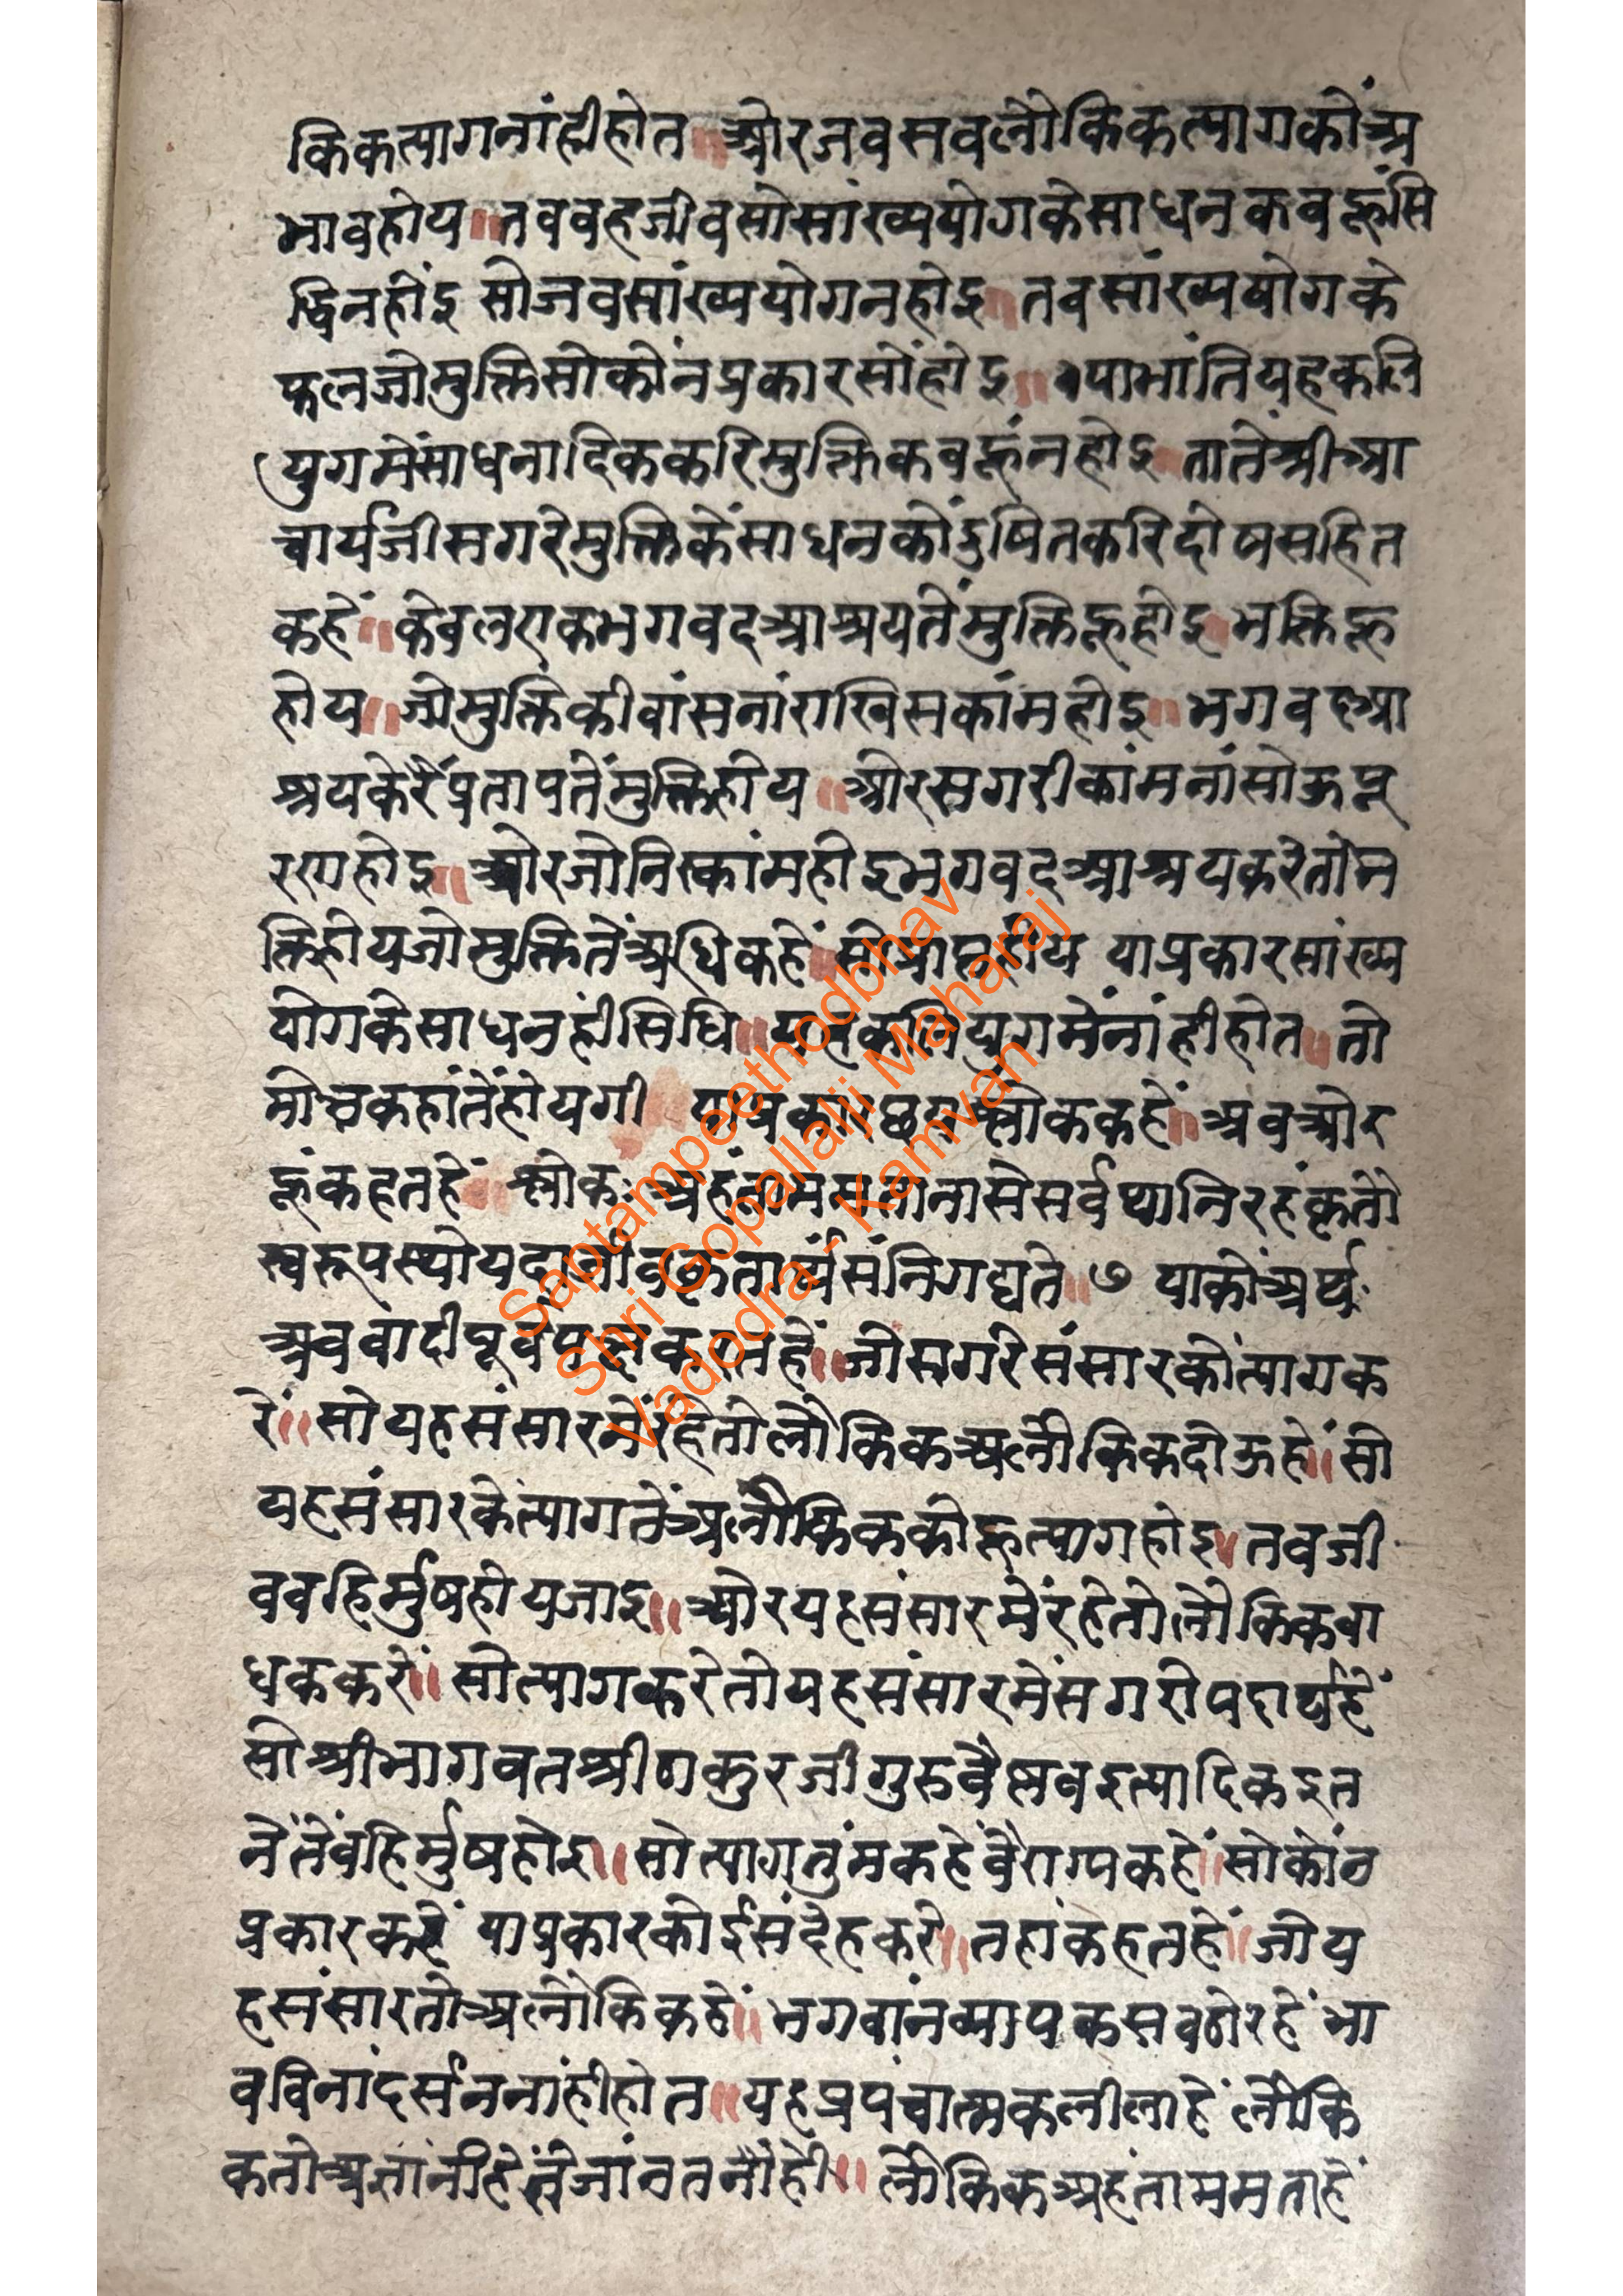 किकत्यागनांहीहोत ॥ ओरजवसवलौकिकत्यागकोंअ
भावहोय ॥ तववहजीवसोसांख्ययोगकेसाधनकवहूंसि
द्धिनहोंइ सोजवसांख्ययोगनहोइ ॥ तवसांख्ययोगके
फलजोमुक्तिसोकोंनप्रकारसोंहोइ ॥ याभांतियहकलि
युगमेंसाधनादिककरिमुक्तिकवहूंनहोइ तातेंश्रीआ
चार्यजीसगरेमुक्तिकेंसाधनकोंदुषितकरिदोषसहित
कहें ॥ केवलएकभगवदआश्रयतेंमुक्तिहूहोइ भक्तिहू
होय ॥ जोमुक्तिकीवांसनांराखिसकांमहोइ ॥ भगवदआ
श्रयकेरैंप्रतापतेंमुक्तिहोय ॥ ओरसगरीकांमनांसोऊपू
रणहोइ ॥ ओरजोनिस्कांमहोइभगवदआश्रयकरेतोभ
क्तिहोयजोमुक्तितेंअधिकहें सोप्राप्तहोय याप्रकारसांख्य
योगकेसाधनहींसिधि ॥ यहकलियुगमेंनांहीहोत ॥ तो
मोक्षकहांतेंहोयगी याप्रकारछठाश्लोककहें ॥ अवओर
हूंकहतहें श्लोकः अहंताममतानासेसर्वथानिरहंकृतौ
स्वरूपस्थोयदाजीवकृतार्थसंनिगद्यते ॥ ७ याकोंअर्थः
अववादीपूर्वपक्षकरतहें ॥ जोसगरेसंसारकोंत्यागक
रें ॥ सोयहसंसारमेंरहेतोलौकिकअलौकिकदोऊहें ॥ सो
यहसंसारकेत्यागतेंअलौकिककोहूत्यागहोइ ॥ तवजी
ववहिर्मुषहोयजाइ ॥ ओरयहसंसारमेंरहेतोलौकिकवा
धककरें ॥ सोत्यागकरेतोयहसंसारमेंसगरोपदार्थहें
सोश्रीभागवतश्रीठाकुरजीगुरुवैष्णवइत्यादिकइत
नेंतेंवहिर्मुषहोइ ॥ सोत्यागतुंमकहेंवैराग्यकहें ॥ सोकोंन
प्रकारकरें याप्रकारकोईसंदेहकरे ॥ तहांकहतहें ॥ जोय
हसंसारतोअलौकिकहें ॥ भगवांनव्यापकसवठोरहें भा
वविनांदर्सननांहीहोत ॥ यहप्रपंचात्मकलीलाहें लौकि
कतोअज्ञांनीहेंतेजांनतनांहीं ॥ लौकिकअहंताममताहें
Saptampeethodbhav
Shri Gopallalji Maharaj
Vadodra - Kamvan